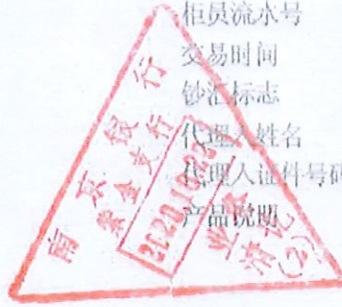 柜员流水号
交易时间
钞汇标志
代理人姓名
代理人证件号码
产品说明
南京银行
支行
业务
清讫
(2)